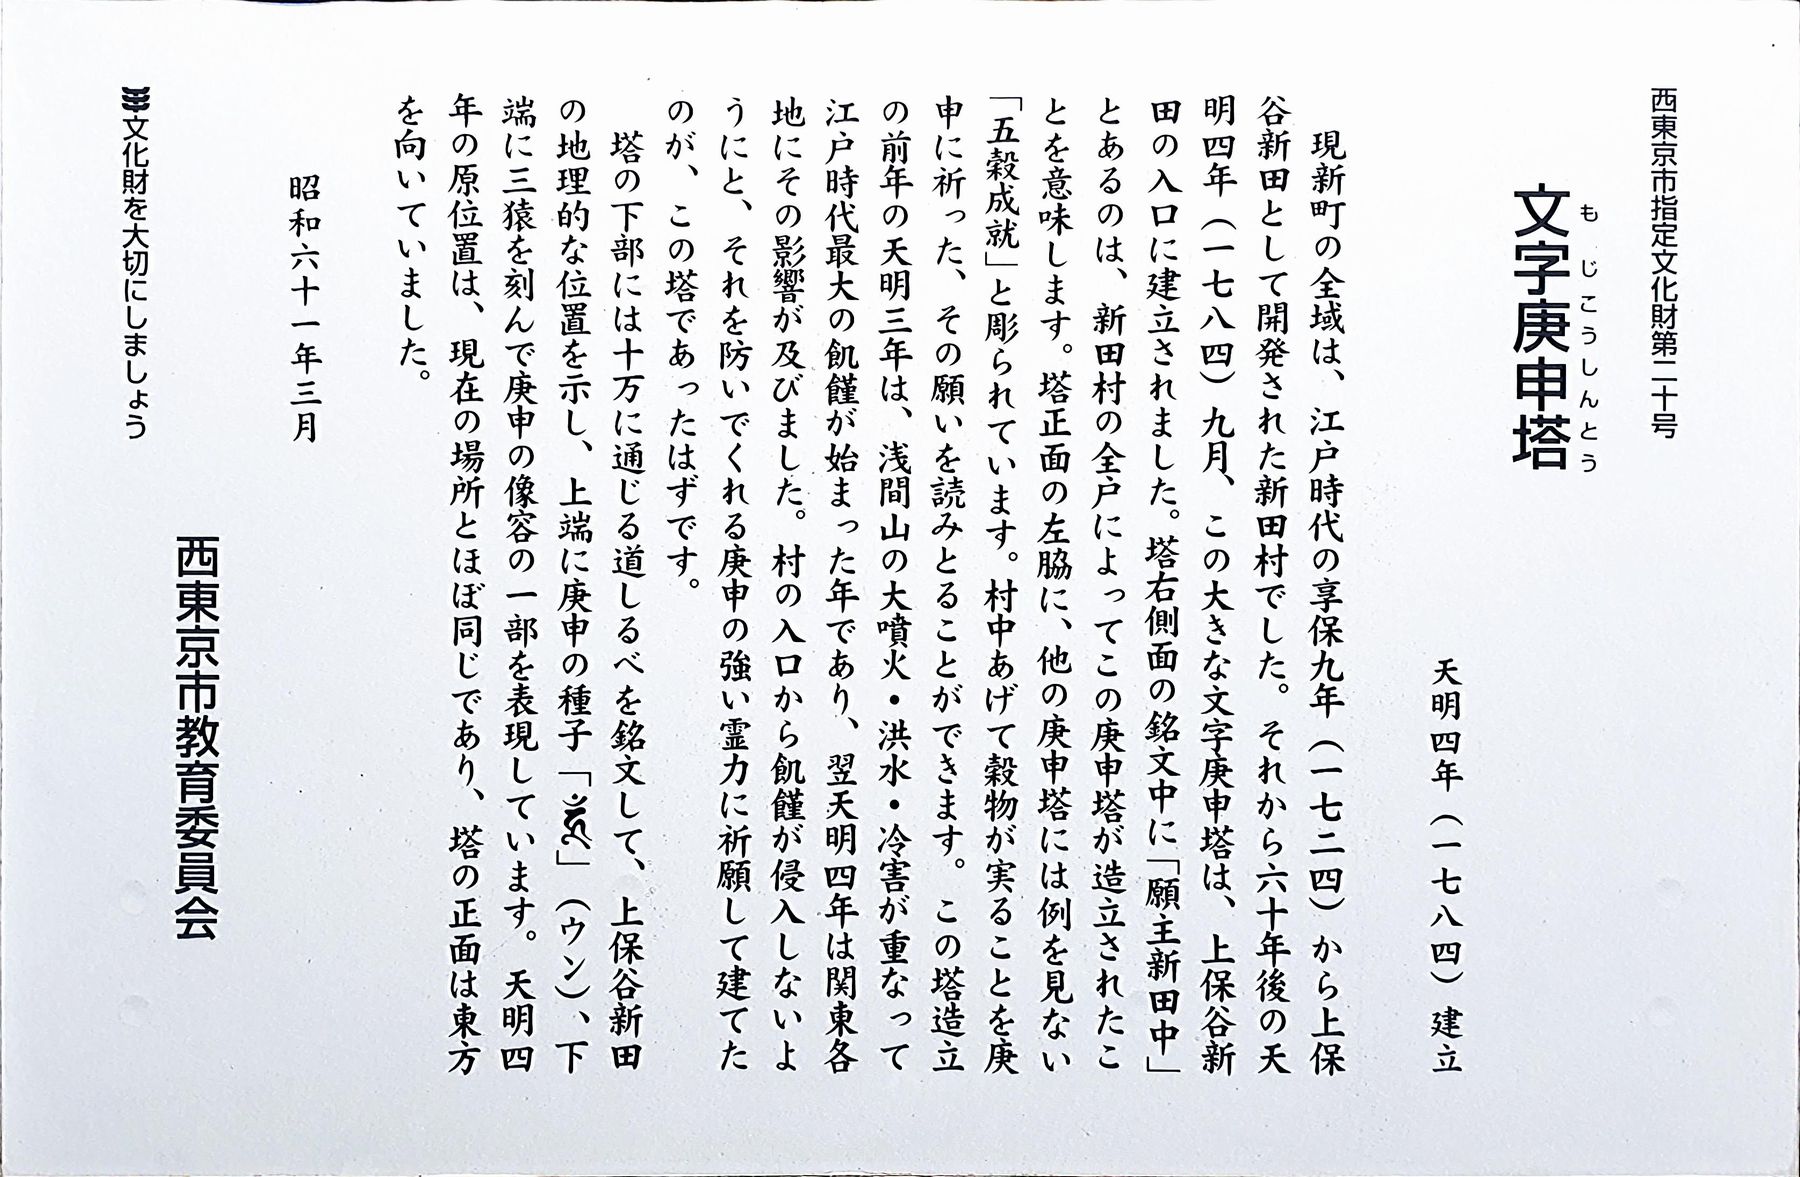 西東京市指定文化財第二十号
文字庚申塔
もじこうしんとう
天明四年（一七八四）建立
現新町の全域は、江戸時代の享保九年（一七二四）から上保
谷新田として開発された新田村でした。それから六十年後の天
明四年（一七八四）九月、この大きな文字庚申塔は、上保谷新
田の入口に建立されました。塔右側面の銘文中に「願主新田中」
とあるのは、新田村の全戸によってこの庚申塔が造立されたこ
とを意味します。塔正面の左脇に、他の庚申塔には例を見ない
「五穀成就」と彫られています。村中あげて穀物が実ることを庚
申に祈った、その願いを読みとることができます。この塔造立
の前年の天明三年は、浅間山の大噴火・洪水・冷害が重なって
江戸時代最大の飢饉が始まった年であり、翌天明四年は関東各
地にその影響が及びました。村の入口から飢饉が侵入しないよ
うにと、それを防いでくれる庚申の強い霊力に祈願して建てた
のが、この塔であったはずです。
塔の下部には十万に通じる道しるべを銘文して、上保谷新田
の地理的な位置を示し、上端に庚申の種子「」（ウン）、下
端に三猿を刻んで庚申の像容の一部を表現しています。天明四
年の原位置は、現在の場所とほぼ同じであり、塔の正面は東方
を向いていました。
昭和六十一年三月
西東京市教育委員会
文化財を大切にしましょう